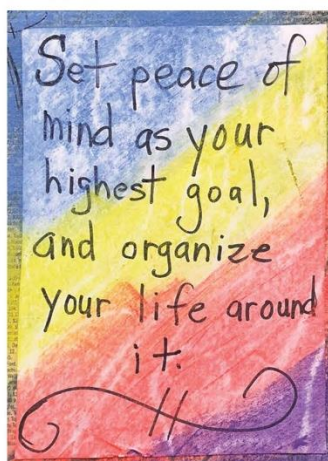 Set peace of
mind as your
highest goal,
and organize
your life around
it.